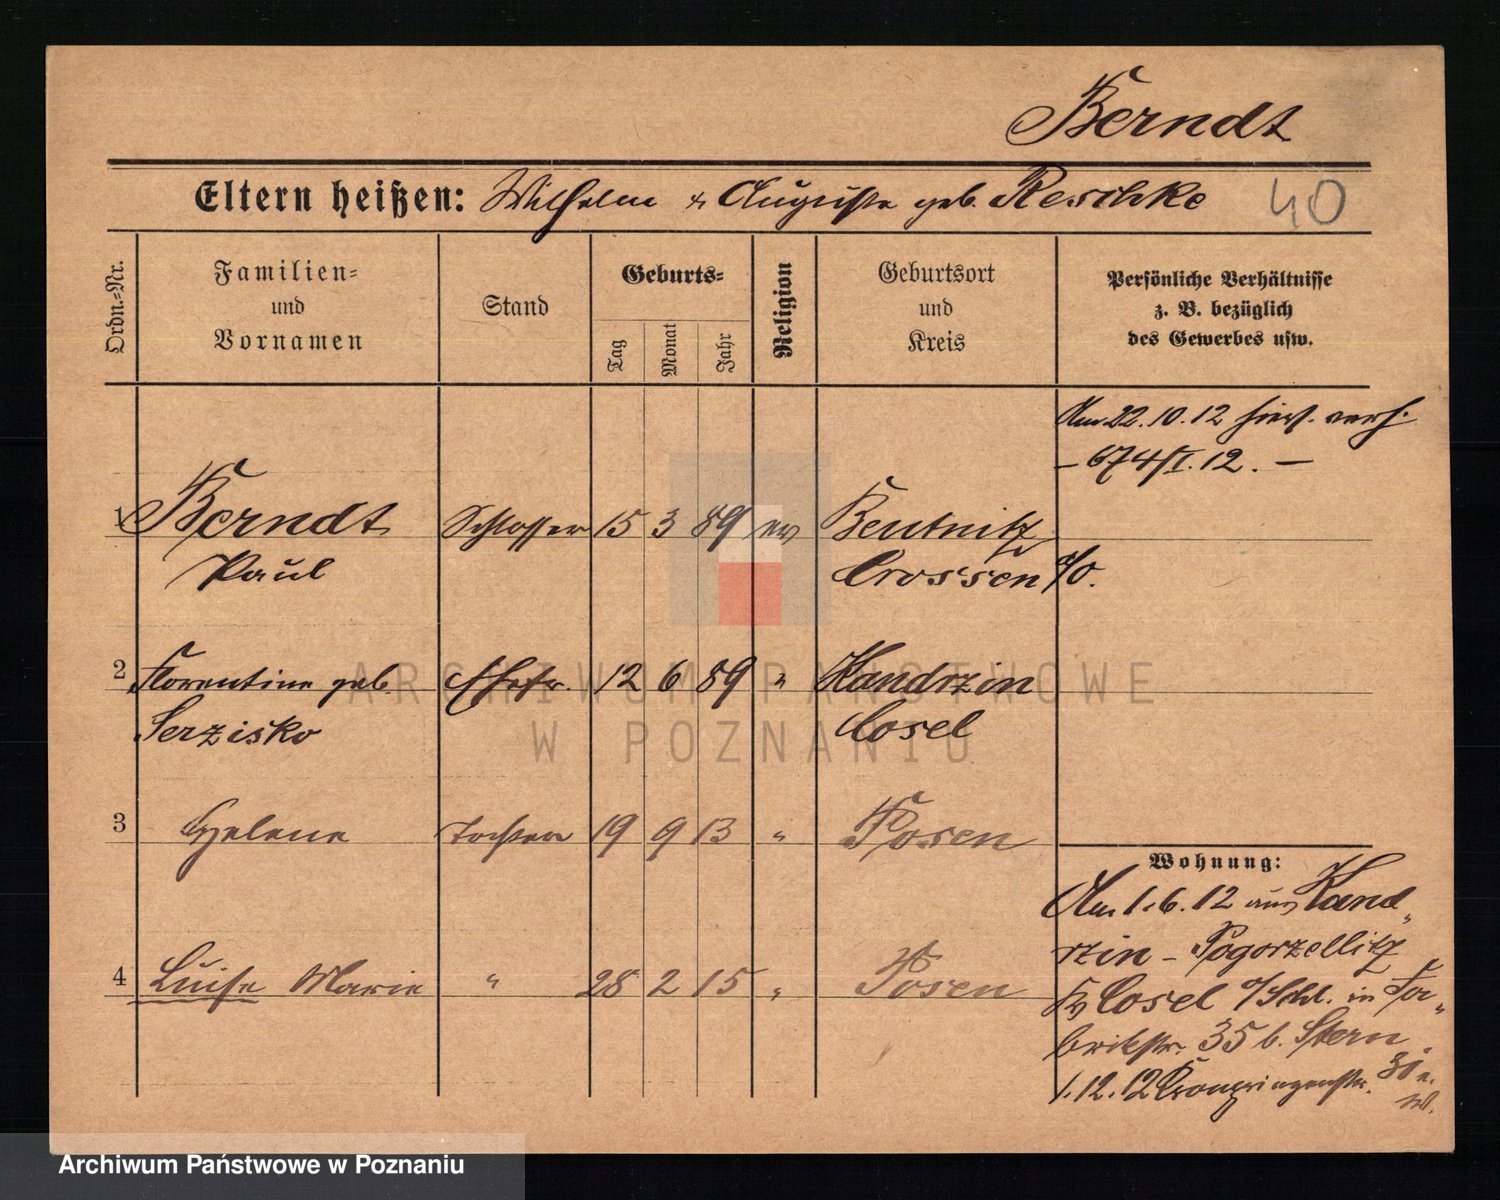 Berndt
Eltern heißen: Wilhelm & Auguste geb. Reschke 40
Ordn.=Nr.
Familien=
und
Vornamen
Stand
Geburts=
Tag
Monat
Jahr
Religion
Geburtsort
und
Kreis
Persönliche Verhältnisse
z. B. bezüglich
des Gewerbes usw.
Am 22.10.12 hies. verh.
– 674/I.12. –
1 Berndt Schlosser 15 3 89 ev Beutnitz
Paul Crossen a/O.
2 Florentine geb. Ehefr. 12 6 89 " Kandrzin
Serzisko Cosel
3 Helene Tochter 19 9 13 " Posen
Wohnung:
Am 1.6.12 aus Kand-
rzin – Pogorzellitz
4 Luise Marie " 28 2 15 " Posen
Cosel O/Schl. in Fa-
brikstr. 35 b. Stern.
1.12.12 Kronprinzenstr.
ARCHIWUM PAŃSTWOWE
W POZNANIU
Archiwum Państwowe w Poznaniu